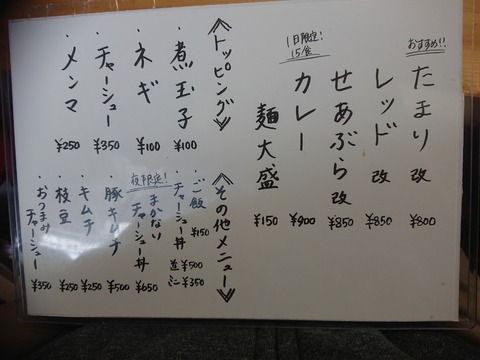 おすすめ!!
たまり 改 ¥800
レッド 改 ¥850
せあぶら 改 ¥850
1日限定!
15食
カレー ¥900
麺大盛 ¥150
《トッピング》
・煮玉子 ¥100
・ネギ ¥100
・チャーシュー ¥350
・メンマ ¥250
《その他メニュー》
・ご飯 ¥150
・チャーシュー丼 並 ¥500
ミニ ¥350
夜限定!
・まかない
チャーシュー丼 ¥650
・豚キムチ ¥500
・キムチ ¥250
・枝豆 ¥250
・おつまみ
チャーシュー ¥350